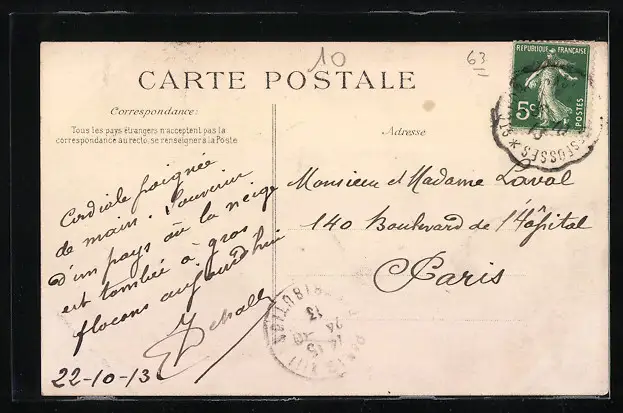 10
63
CARTE POSTALE
RÉPUBLIQUE FRANÇAISE
5c
POSTES
Correspondance:
Tous les pays étrangers n'acceptent pas la
correspondance au recto, se renseigner à la Poste
Adresse
Cordiale poignée
de main. Souvenir
d'un pays où la neige
est tombée à gros
flocons aujourd'hui
22-10-13
Monsieur et Madame Laval
140 Boulevard de l'Hôpital
Paris
PARIS XIII
DISTRIBUTION